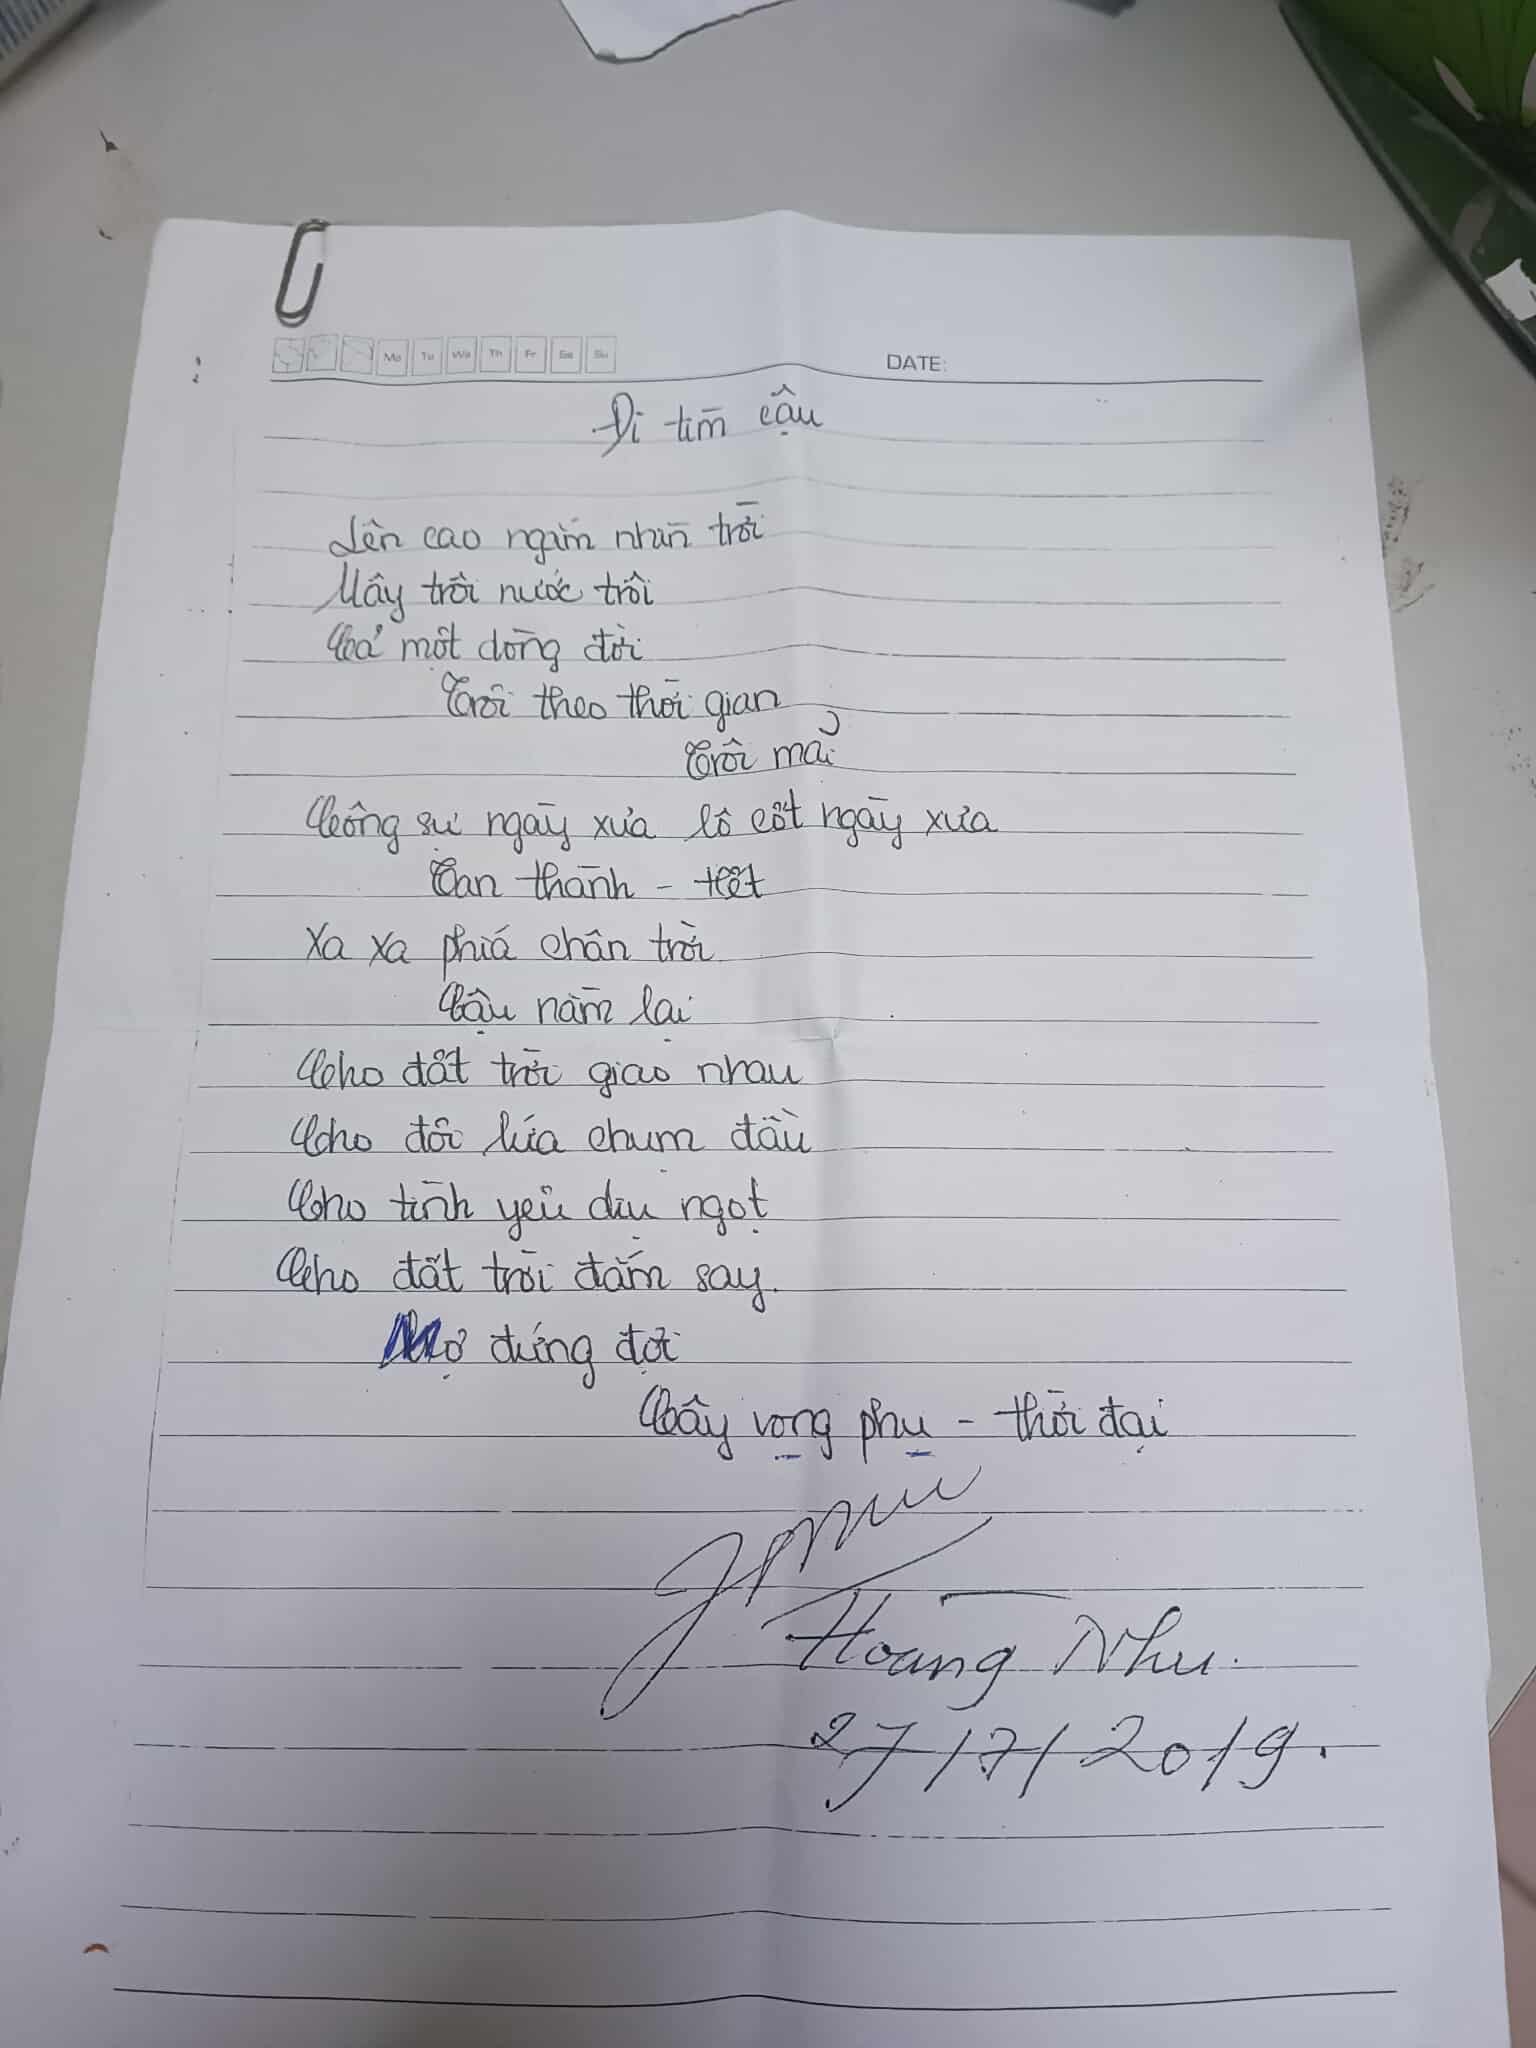 Mo Tu We Th Fr Sa Su DATE:
Đi tìm cậu
Lên cao ngắm nhìn trời
Mây trôi nước trôi
Cả một dòng đời
Trôi theo thời gian
Trôi mãi
Công sự ngày xưa lô cốt ngày xưa
Tan thành - hết
Xa xa phía chân trời
Cậu nằm lại
Cho đất trời giao nhau
Cho đôi lứa chụm đầu
Cho tình yêu dịu ngọt
Cho đất trời đắm say.
Mợ đứng đợi
Cây vọng phụ - thời đại
Hoàng Như.
27/7/2019.